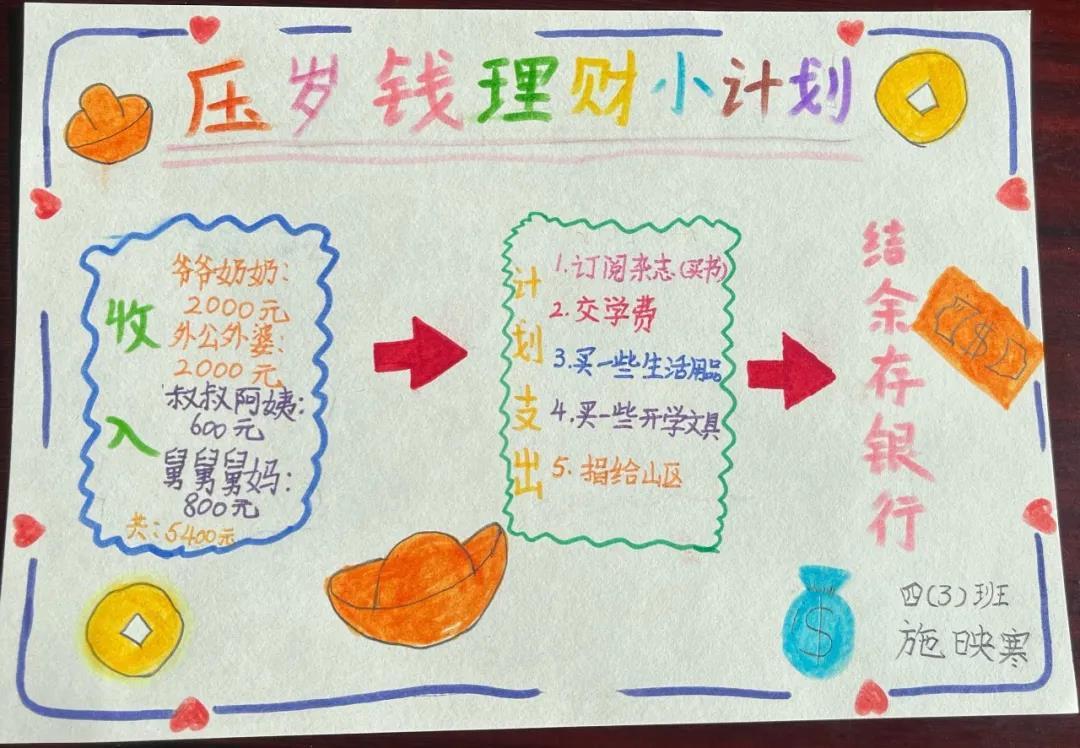 压岁钱理财小计划
收入
爷爷奶奶:
2000元
外公外婆:
2000元
叔叔阿姨:
600元
舅舅舅妈:
800元
共:5400元
计划支出
1.订阅杂志(买书)
2.交学费
3.买一些生活用品
4.买一些开学文具
5.捐给山区
结余存银行
$
$
四(3)班
施映寒